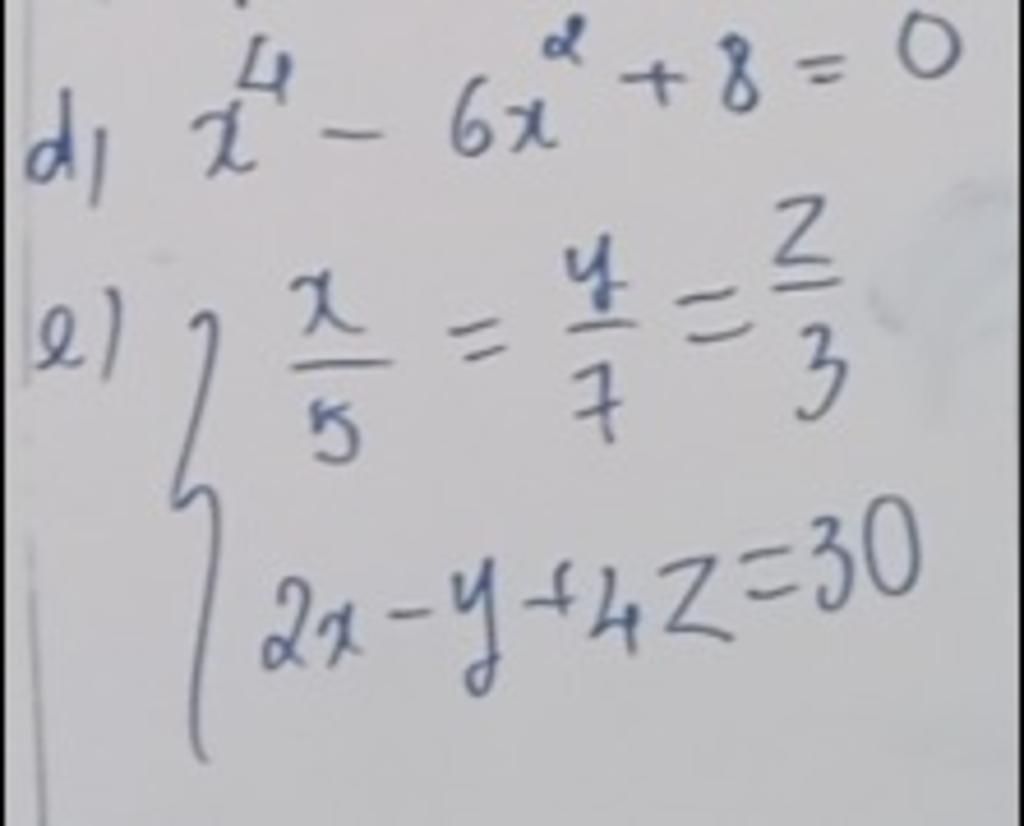 d) x⁴ - 6x² + 8 = 0
e) { x/5 = y/7 = z/3
2x - y + 4z = 30